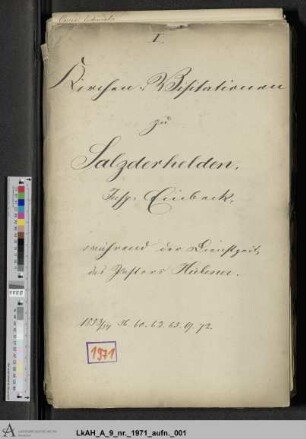 I.
Kirchen-Visitationen
zu
Salzderhelden,
Insp. Einbeck,
während der Dienstzeit
des Pastors Hübener.
1971
LkAH_A_9_nr._1971_aufn._001